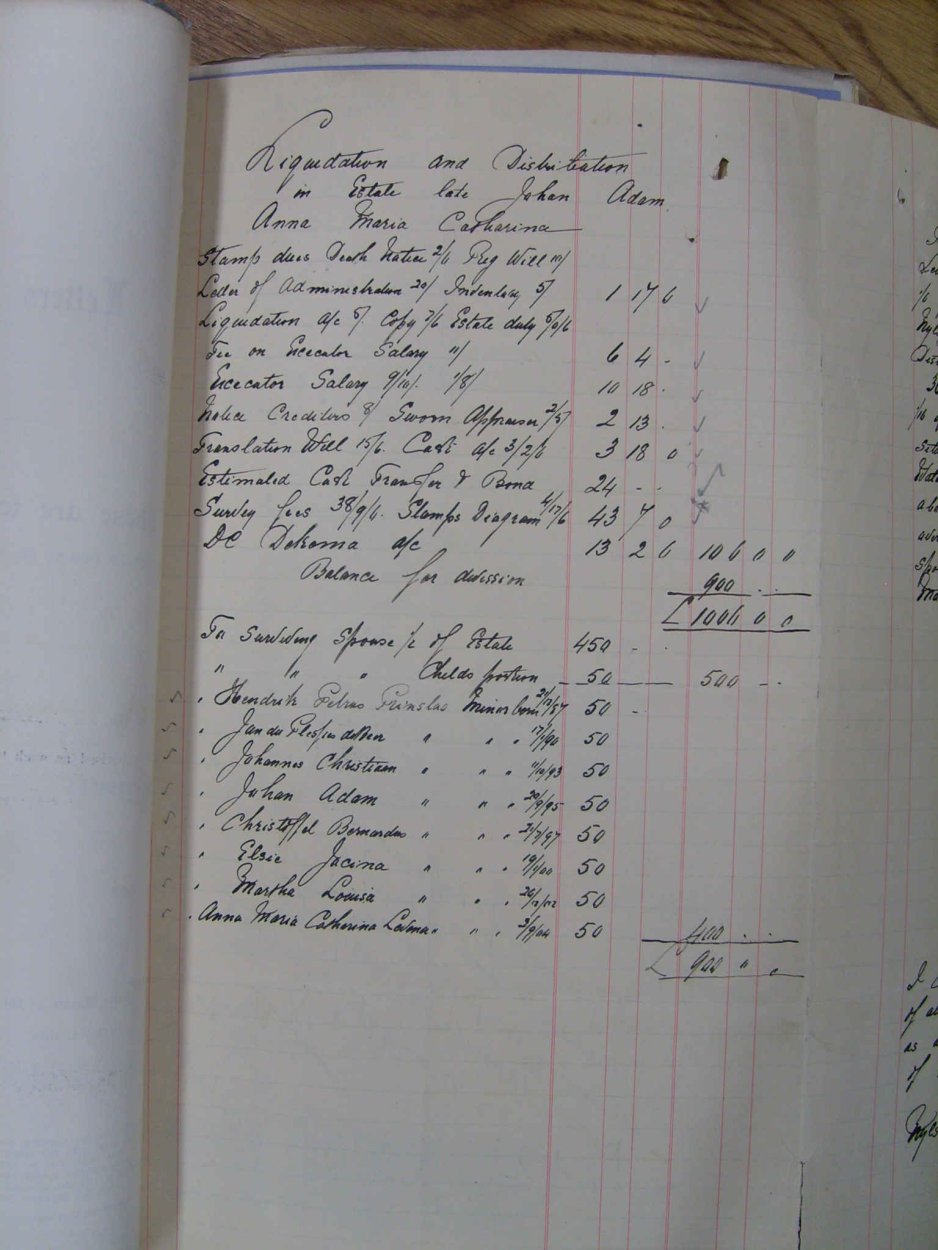 Liquidation and Distribution
in Estate late Johan Adam
Anna Maria Catharina
Stamp dues Death Notice 2/6 Reg Will 10/
Letter of Administration 20/ Inventory 5/ 1 17 6
Liquidation a/c 5/. Copy 7/6 Estate duty 5/9/6
Fee on Execator Salary 11/ 6 4 -
Execator Salary 9/10/. 1/8/ 10 18 -
Notice Creditors 8/ Sworn Appraiser 2/5/ 2 13 -
Translation Will 15/6. Cash a/c 3/2/6 3 18 0
Estimated Cost Transfer & Bond 24 - -
Survey fees 38/9/6. Stamps Diagram 4/17/6 43 7 0
a/c 13 2 6 106 0 0
Balance for division 900 - -
£ 1006 0 0
To Surviving Spouse ½ of Estate 450 - -
" " " Childs portion 50 500 - -
" Hendrik Petrus Prinsloo Minor born 21/12/87 50 -
" Jan du " " " 17/1/90 50
" Johannes Christiaan " " " 11/10/93 50
" Johan Adam " " 20/9/95 50
" Christoffel Bernardus " " " 21/7/97 50
" Elsie Jacina " " " 19/1/00 50
" Martha Louisa " " " 26/12/02 50
" Anna Maria Catharina " " " 3/9/04 50 400 - -
£ 900 " "